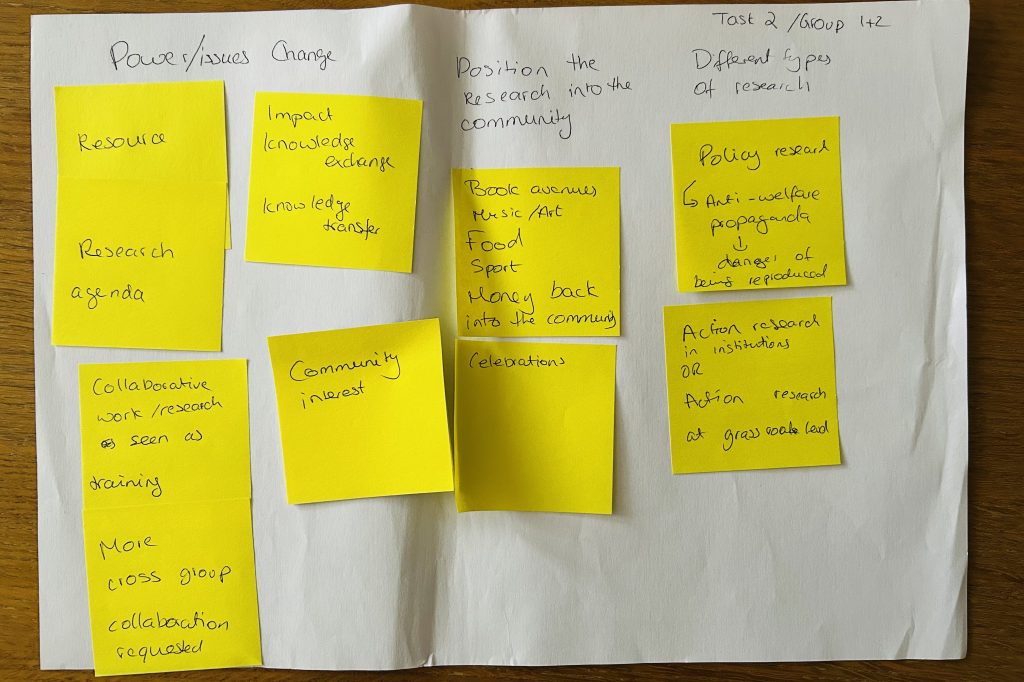 Task 2 / Group 1+2
Power/issues
Resource
Research
agenda
Collaborative
work/research
seen as
training
More
cross group
collaboration
requested
Change
Impact
Knowledge
exchange
Knowledge
transfer
Community
interest
Position the
Research into the
community
Book avenues
Music/Art
Food
Sport
Money back
into the community
Celebrations
Different types
of research
Policy research
↳ Anti-welfare
propaganda
↓
danger of
being reproduced
Action research
in institutions
OR
Action research
at grass level